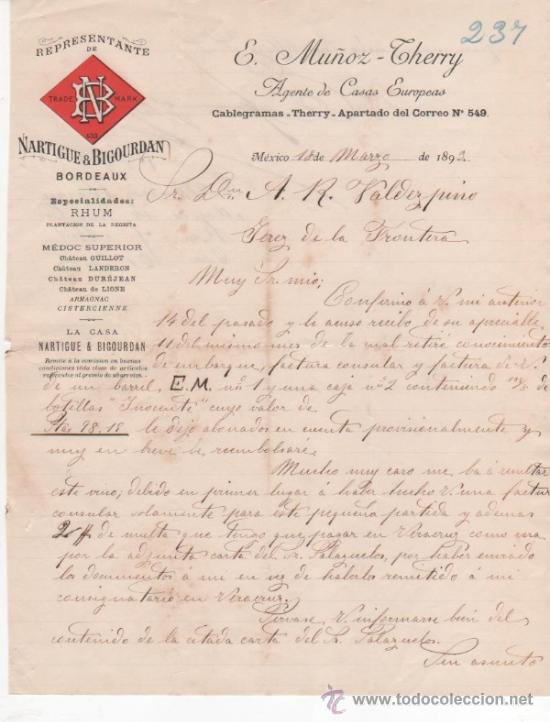 237
REPRESENTANTE
DE
TRADE MARK
NARTIGUE & BIGOURDAN
BORDEAUX
Especialidades:
RHUM
PLANTACION DE LA NEGRITA
MÉDOC SUPERIOR
Château GUILLOT
Château LANDERON
Château DURÉJEAN
Château de LIGNE
ARMAGNAC
CISTERCIENNE
LA CASA
NARTIGUE & BIGOURDAN
Remite á la comision en buenas
condiciones toda clase de artículos
E. Muñoz-Therry
Agente de Casas Europeas
Cablegramas-Therry-Apartado del Correo Nº 549.
México 18 de Marzo de 1892.
Sr. Dn. A. R. Valdezpino
Jerez de la Frontera
Muy Sr. mio;
Confirmo á V. mi anterior
14 del pasado y le acuso recibo de su apreciable
11 del mismo mes de la cual retiro conocimiento
de embarque, factura consular y factura de V.
de un barril E.M. nº 1 y una caja nº 2 conteniendo
botellas "Inocente" cuyo valor de
Pts 98.18 le dejo abonados en cuenta provisionalmente y
muy en breve le reembolsaré.
Mucho muy caro me bá á resultar
este vino; debido en primer lugar á haber hecho V. una factura
consular solamente para esta pequeña partida y ademas
de multa que tengo que pagar en Veracruz como verá
por la adjunta carta del Sr. Palazuelos, por haber enviado
los documentos á mi en vez de haberlos remitido á mi
consignatario en Veracruz.
Sirvase V. informarse bien del
contenido de la citada carta del Sr. Palazuelos.
Sin asunto
todocoleccion
www.todocoleccion.net